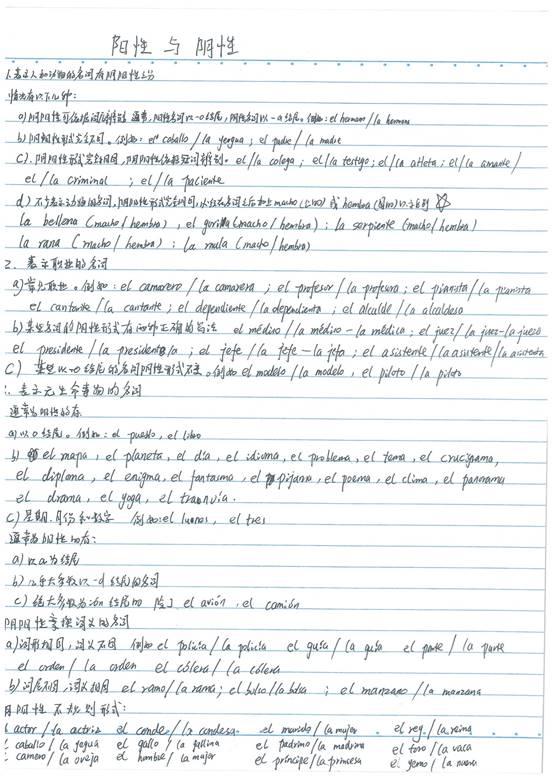 阳性 与 阴性
1.表示人和动物的名词有阴阳性之分
情况有以下几种:
a)阴阳性可依据词尾辨别 通常,阳性名词以-o结尾,阴性名词以-a结尾。例如: el hermano/la hermana
b)阴阳性形式完全不同。例如: el caballo/la yegua ; el padre/la madre
c).阴阳性形式完全相同,阴阳性依据冠词辨别。el/la colega ; el/la testigo ; el/la atleta ; el/la amante/
el/la criminal ; el/la paciente
d) 不少表示动物的名词,阴阳性形式完全相同,必须在名词之后加上macho(公的) 或 hembra(母的)以示区别 ☆
la ballena (macho/hembra) , el gorilla (macho/hembra) ; la serpiente (macho/hembra)
la rana (macho/hembra) ; la mula (macho/hembra)
2. 表示职业的名词
a)常见职业。例如: el camarero/la camarera ; el profesor/la profesora ; el pianista/la pianista
el cantante/la cantante ; el dependiente/la dependienta ; el alcalde/la alcaldesa
b)某些名词的阴性形式有两种正确的写法 el médico/la médico-la médica ; el juez/la juez-la jueza
el presidente/la presidente/a ; el jefe/la jefe-la jefa ; el asistente/la asistente/la asistenta
C) 某些以-o结尾的名词阴阳性形式不变。例如 el modelo/la modelo , el piloto/la piloto
:. 表示无生命事物的名词
通常为阳性的有
a)以o结尾。例如: el pueblo, el libro
b) el mapa, el planeta, el día, el idioma, el problema, el tema, el crucigrama,
el diploma , el enigma, el fantasma , el pijama, el poema, el clima, el panorama
el drama, el yoga, el tranvía.
C)星期.月份和数字 例如:el lunes, el tres
通常为阴性的有:
a)以a为结尾
b)几乎大多数以-d结尾的名词
c)绝大多数为ión结尾的 除了 el avión ,el camión
阴阳性变换词义的名词
a)词形相同,词义不同 例如 el policía/la policía el guía/la guía el parte/la parte
el orden/la orden el cólera/la cólera
b)词尾不同,词义相同 el ramo/la rama; el bolso/la bolsa ; el manzano/la manzana
阴阳性 不规则形式:
l actor/la actriz el conde/la condesa el marido/la mujer el rey/la reina
l caballo/la yegua el gallo/la gallina el padrino/la madrina el toro/la vaca
l carnero/la oveja el hombre/la mujer el príncipe/la princesa el yerno/la nuera